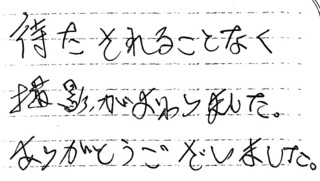 待たそれることなく
撮影がおわりました。
ありがとうございました。